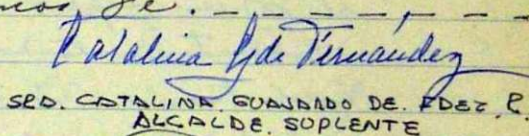 Catalina G de Fernández
SRA. CATALINA GUAJARDO DE. FDEZ. R.
ALCALDE. SUPLENTE